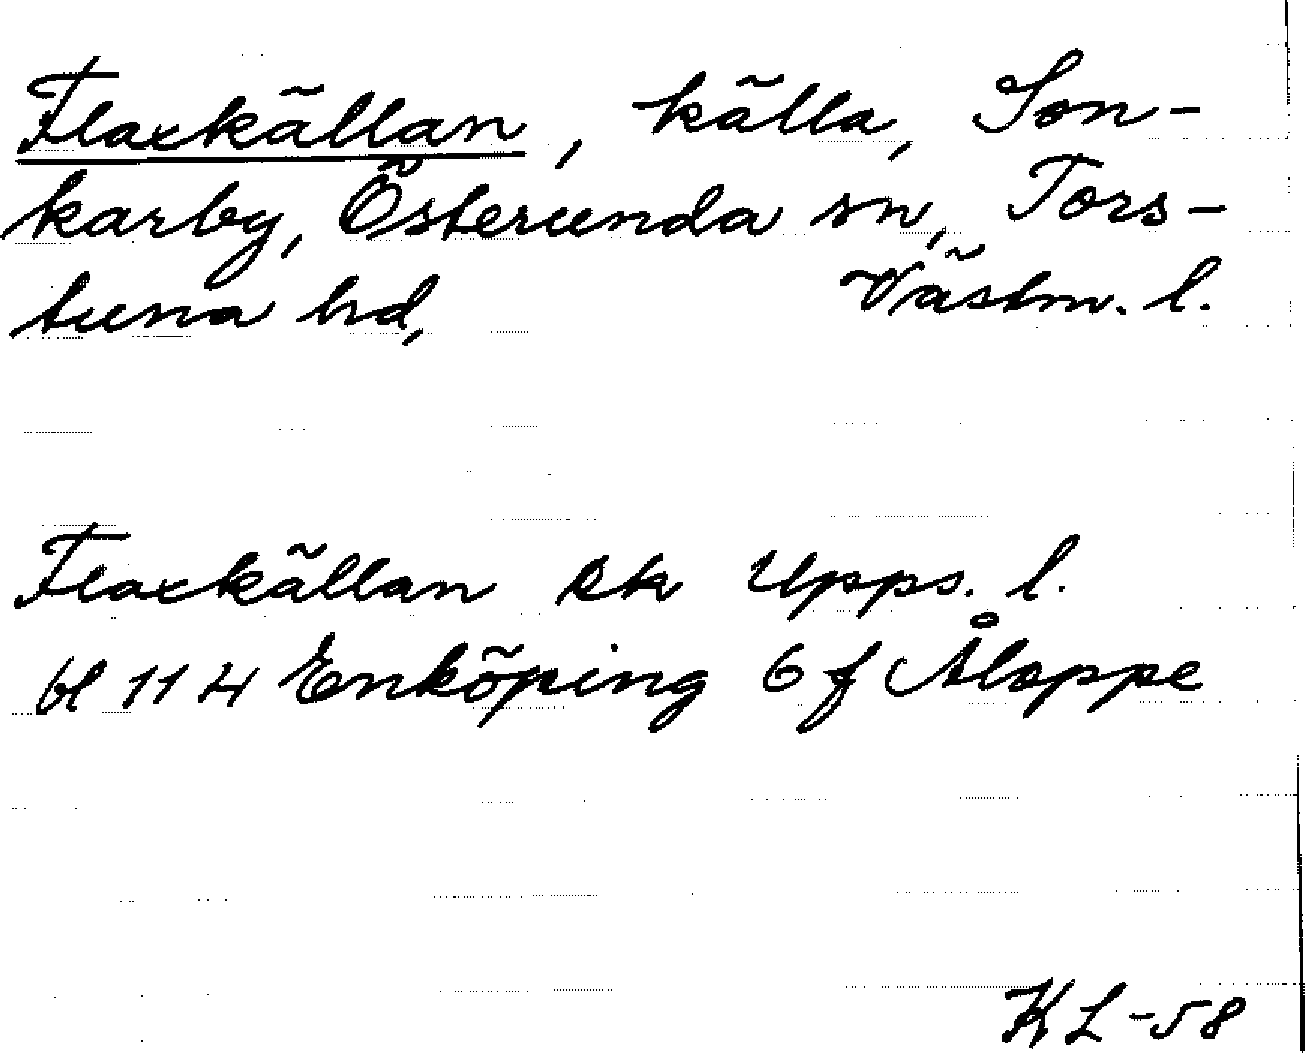 Flaxkällan, källa, Son-
karby, Österunda sn, Tors-
tuna hd, Västm. l.
Flaxkällan Rk Upps. l.
bl 114 Enköping 6 f Åloppe
KL-58